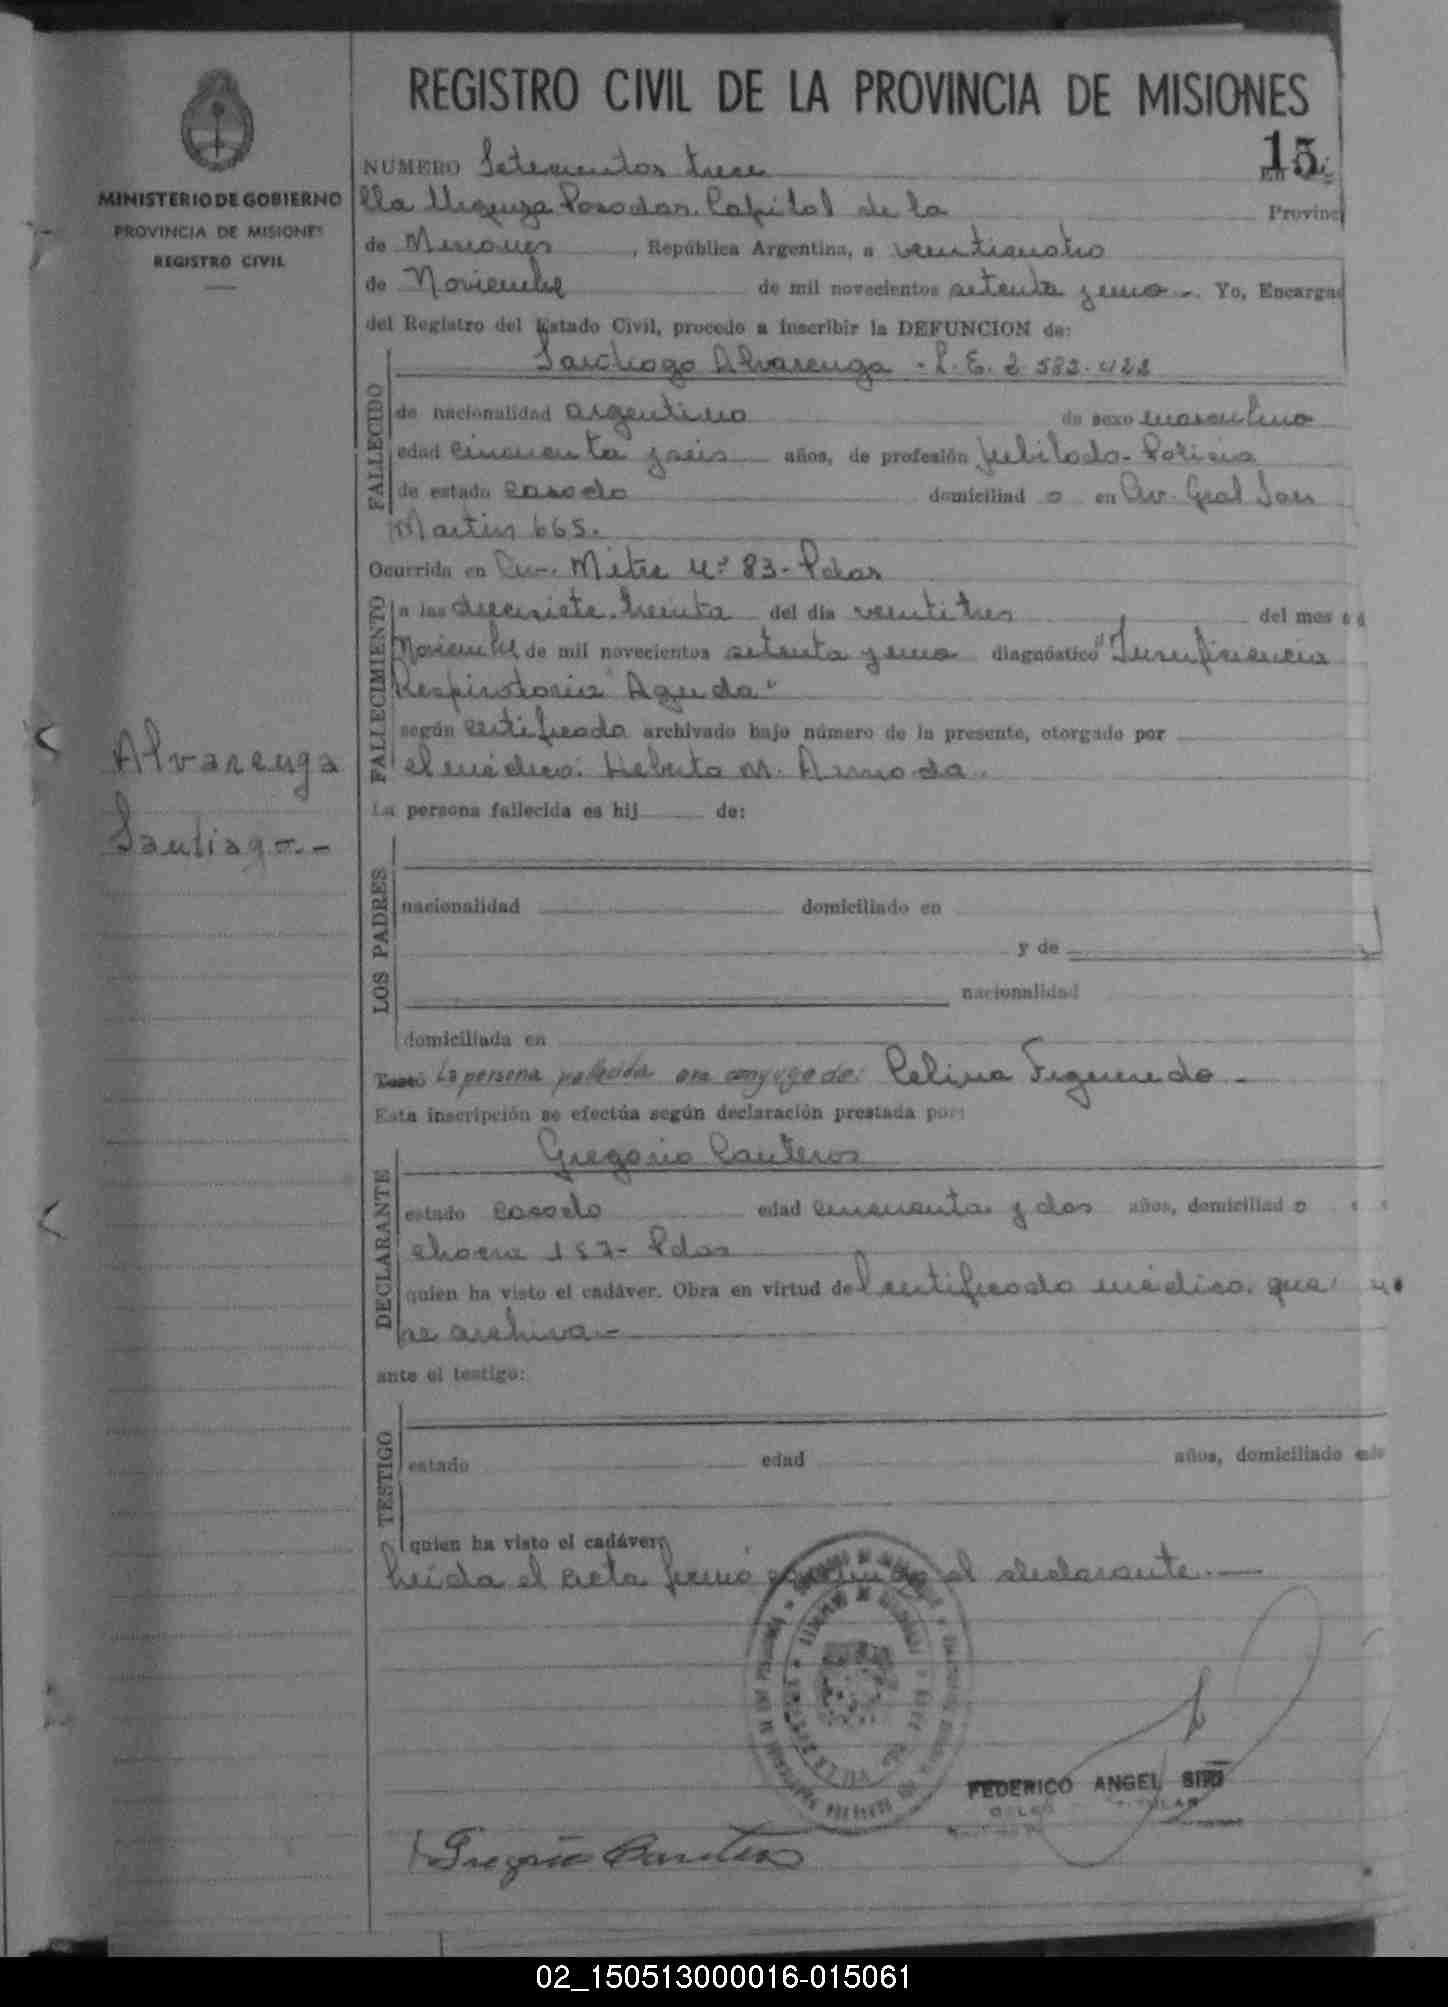 REGISTRO CIVIL DE LA PROVINCIA DE MISIONES
15
MINISTERIO DE GOBIERNO
PROVINCIA DE MISIONES
REGISTRO CIVIL
NUMERO Setecientos trece En
Villa Urquiza Posadas. Capital de la Provinc
de Misiones, República Argentina, a veinticuatro
de Noviembre de mil novecientos setenta y uno -. Yo, Encargad
del Registro del Estado Civil, procedo a inscribir la DEFUNCION de:
Santiago Alvarenga - L.E. 2.583.422
FALLECIDO
de nacionalidad argentino de sexo masculino
edad cincuenta y seis años, de profesión Jubilado-Policia
de estado casado domiciliad o en Av. Gral San
Martin 665.
Ocurrida en Av. Mitre Nº 83- Pdas
FALLECIMIENTO
a las diecisiete. treinta del día veintitres del mes d
Noviembre de mil novecientos setenta y uno diagnóstico "Insuficiencia
Respiratoria Aguda"
según certificado archivado bajo número de la presente, otorgado por
el médico: Heberto M.
Alvarenga
Santiago.-
La persona fallecida es hij de:
LOS PADRES
nacionalidad domiciliado en
y de
nacionalidad
domiciliada en
La persona fallecida era conyuge de: Celina Figueredo -
Esta inscripción se efectúa según declaración prestada por:
Gregorio Canteros
DECLARANTE
estado casado edad cincuenta y dos años, domiciliad o
157- Pdas
quien ha visto el cadáver. Obra en virtud de certificado médico que
se archiva-
ante el testigo:
TESTIGO
estado edad años, domiciliado
quien ha visto el cadáver
Leida el acta firmó el declarante.-
FEDERICO ANGEL
TITULAR
Gregorio Canteros
02_150513000016-015061